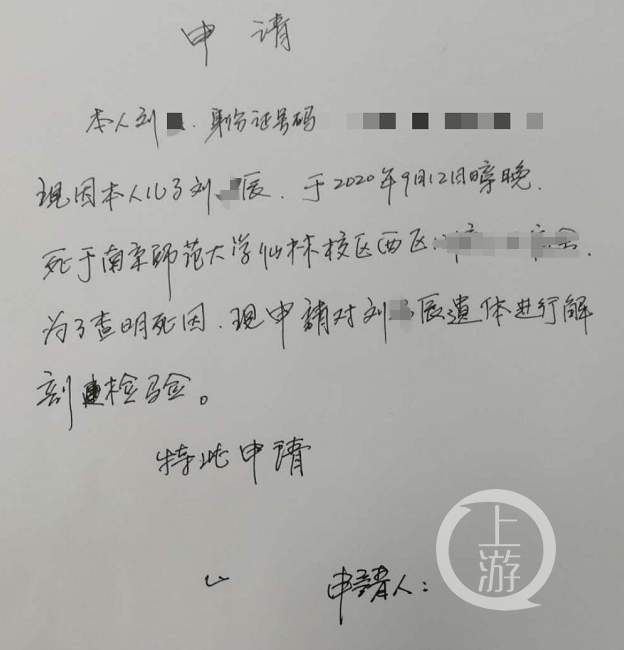 申请
本人刘 . 身份证号码
现因本人儿子刘 辰. 于2020年9月12日傍晚.
死于南京师范大学仙林校区西区
为了查明死因.现申請对刘 辰遺体进行解
剖 检验。
特此申请
申請人：
上游